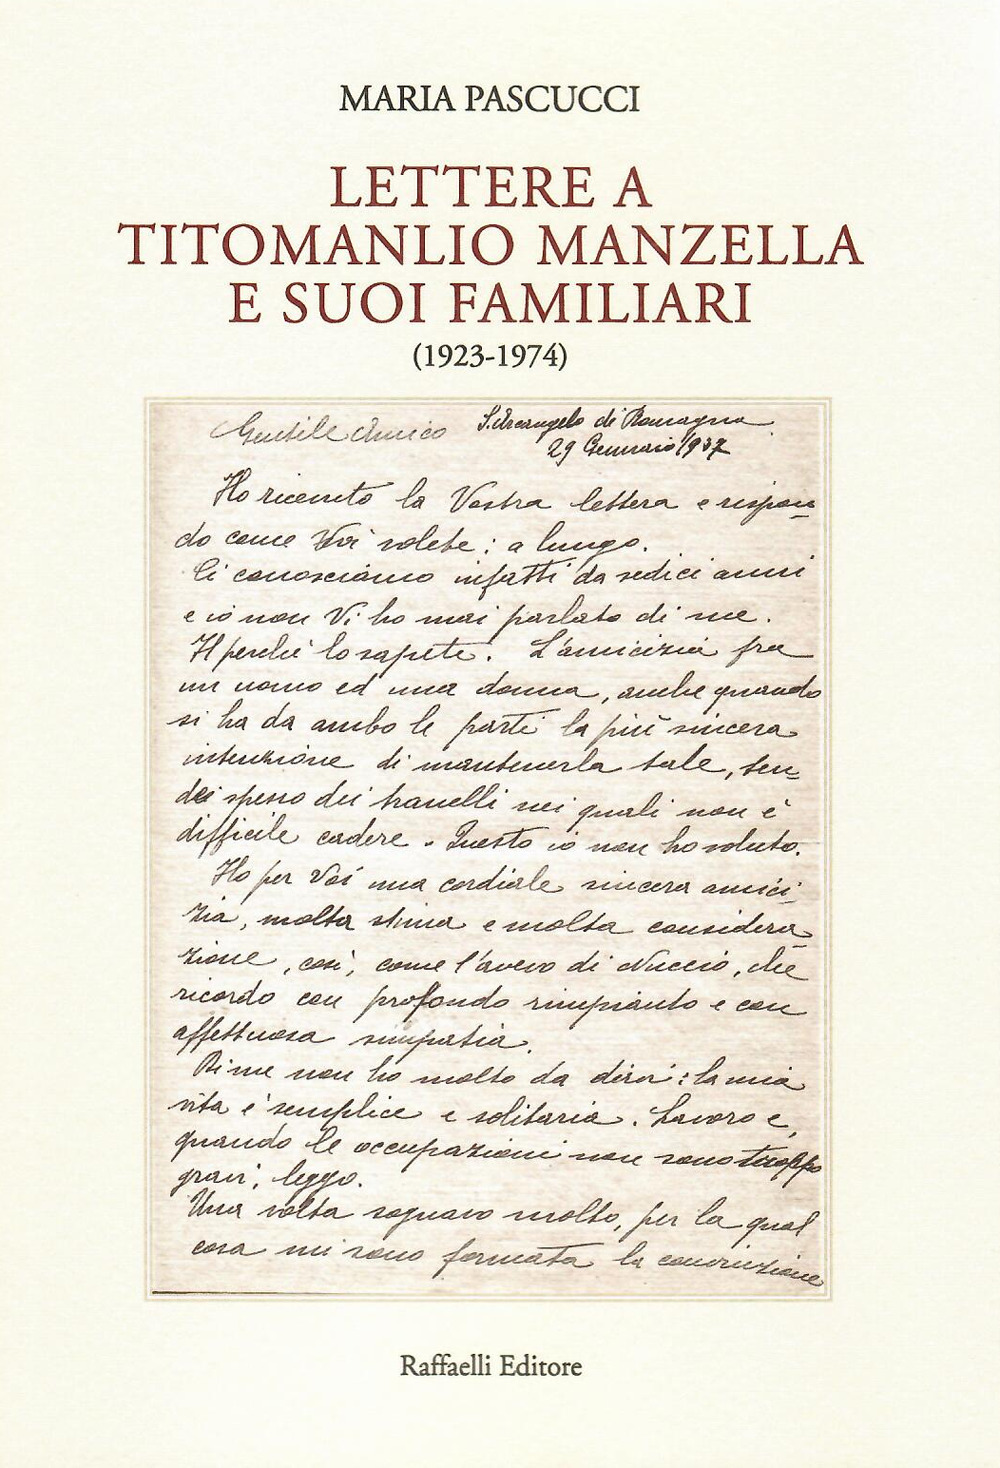 MARIA PASCUCCI
LETTERE A
TITOMANLIO MANZELLA
E SUOI FAMILIARI
(1923-1974)
Gentile Amico
S. Arcangelo di Romagna
29 Gennaio 1937
Ho ricevuto la Vostra lettera e rispon=
do come Voi volete: a lungo.
Ci conosciamo infatti da sedici anni
e io non Vi ho mai parlato di me.
Il perché lo sapete. L'amicizia fra
un uomo ed una donna, anche quando
si ha da ambo le parti la più sincera
intenzione di mantenerla tale, ten=
de spesso dei tranelli nei quali non è
difficile cadere. Questo io non ho voluto.
Ho per Voi una cordiale sincera amici=
zia, molta stima e molta considera=
zione, così, come l'avevo di Nuccio, che
ricordo con profondo rimpianto e con
affettuosa simpatia.
Di me non ho molto da dirvi: la mia
vita è semplice e solitaria. Lavoro e,
quando le occupazioni non sono troppo
gravi, leggo.
Una volta sognavo molto, per la qual
cosa mi sono formata la convinzione
Raffaelli Editore